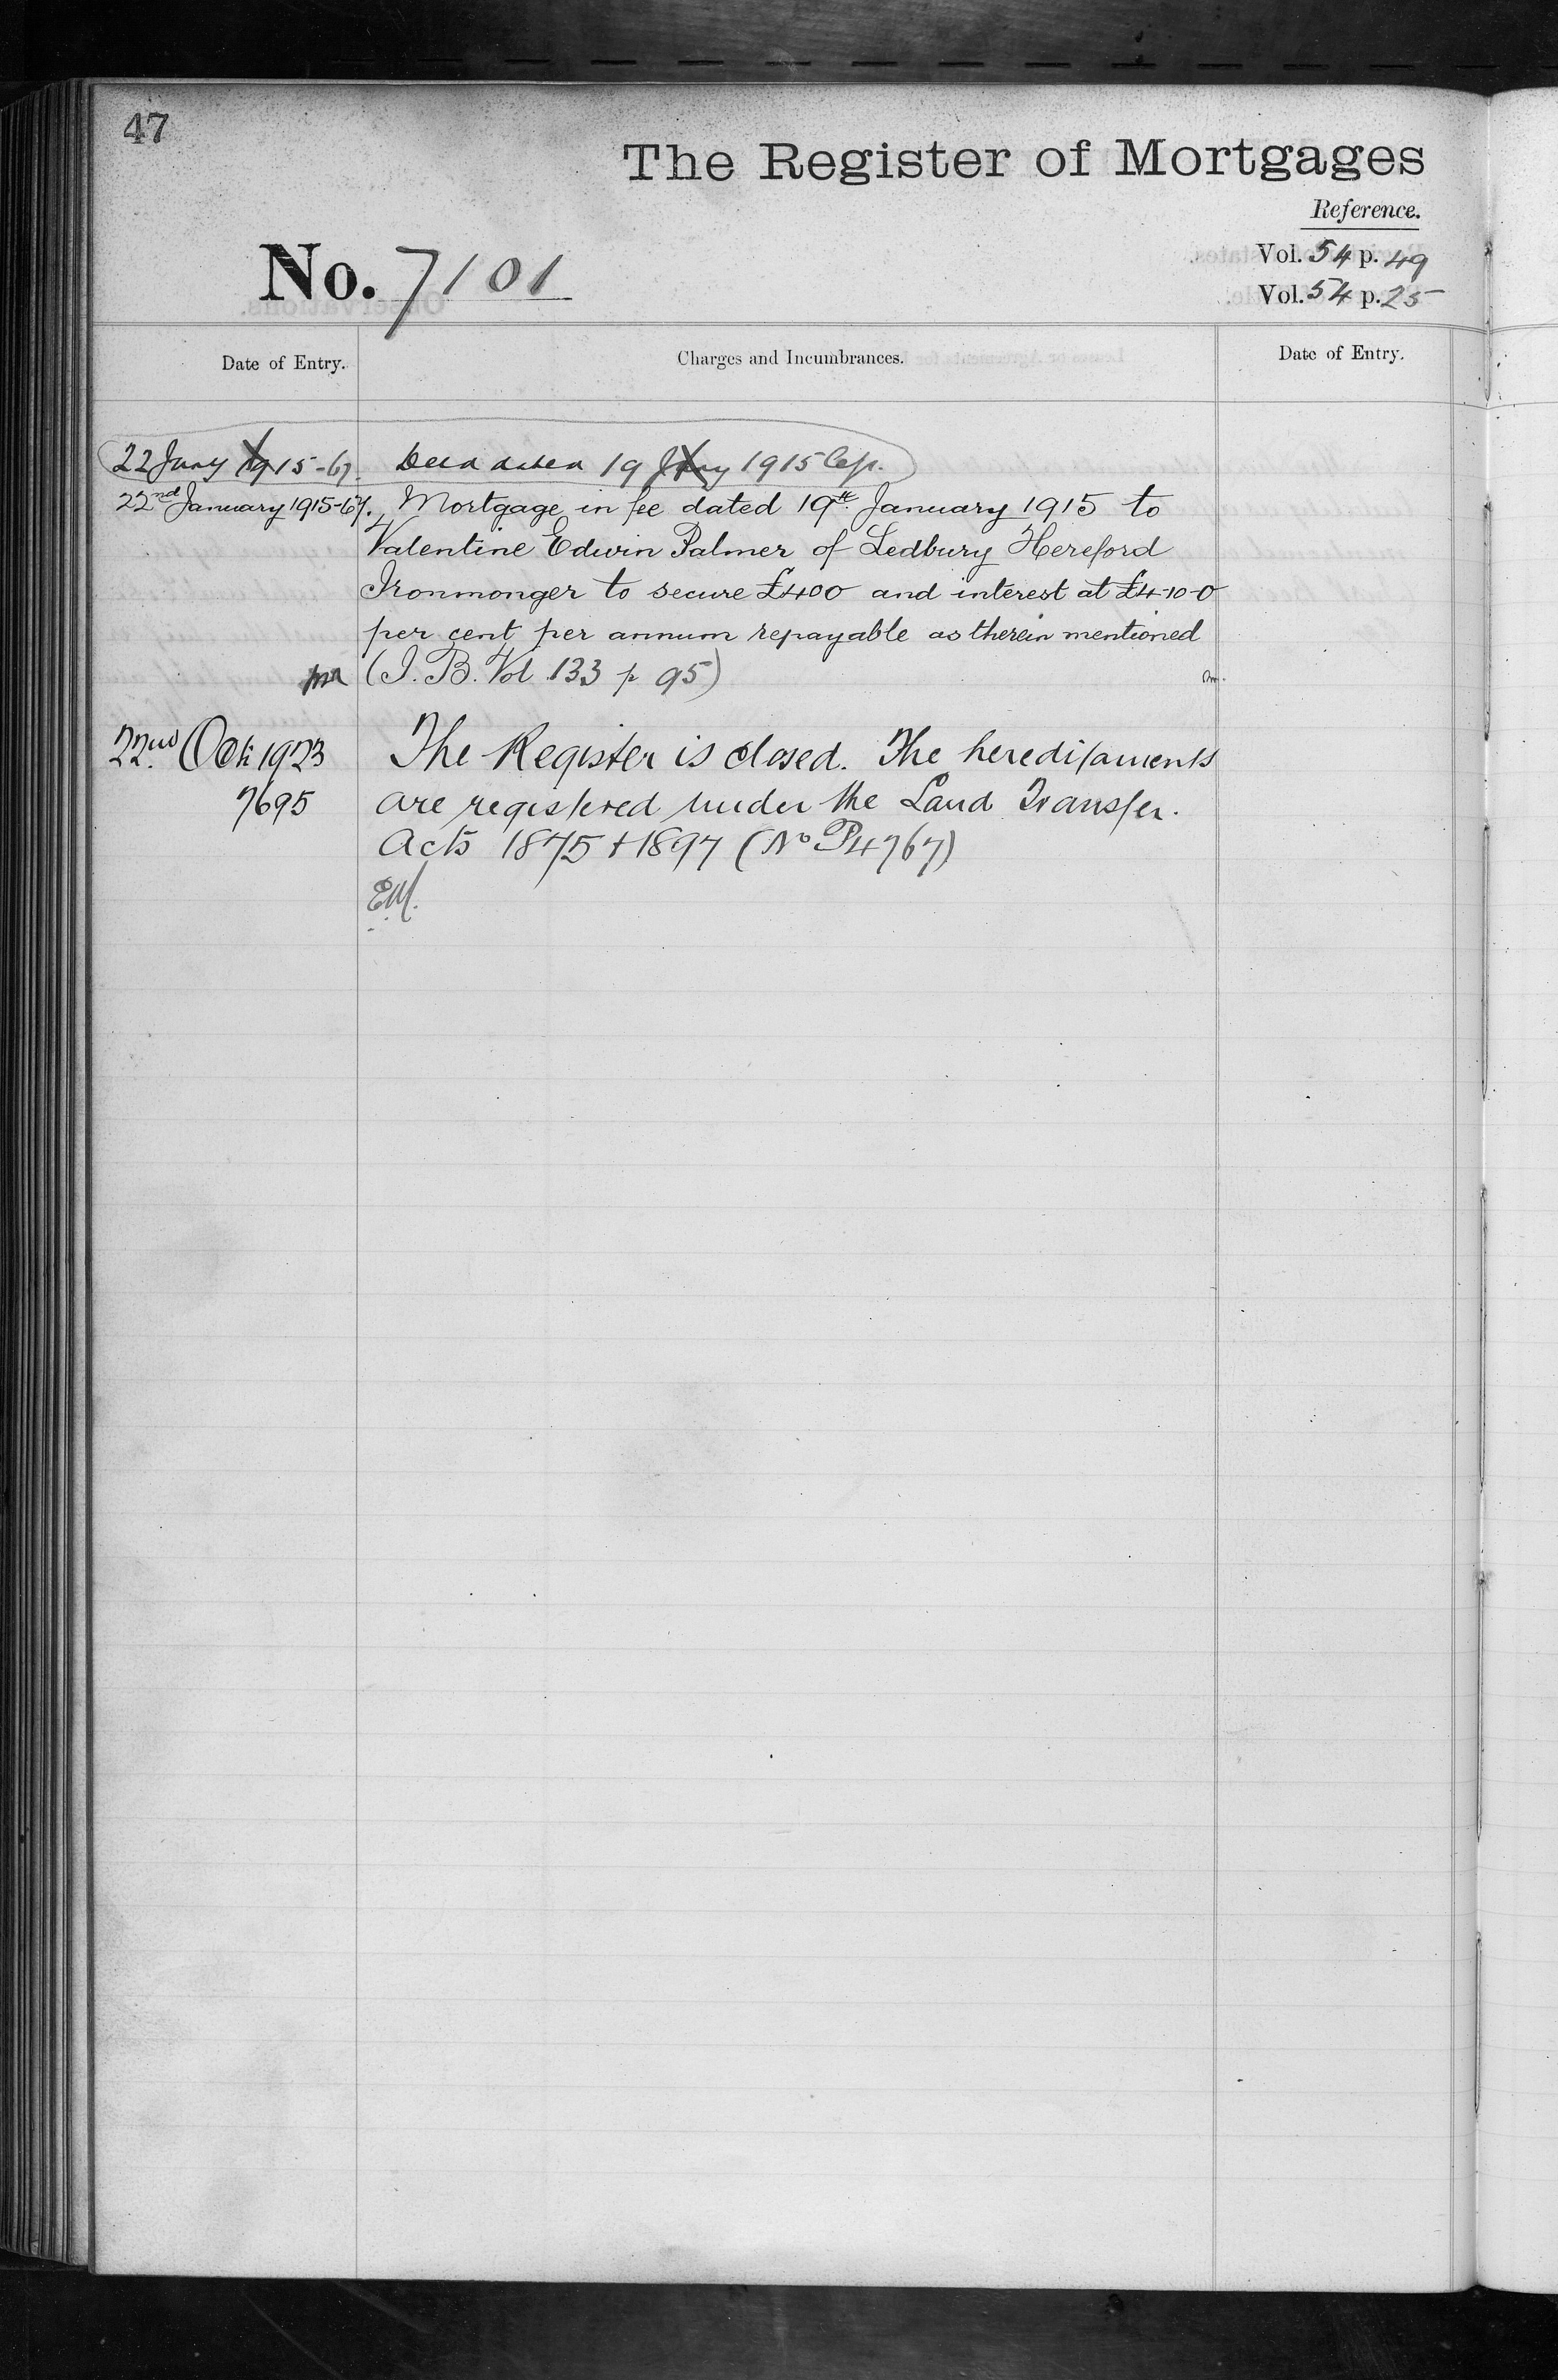 47
The Register of Mortgages
Reference.
No. 7101
Vol. 54 p. 49
Vol. 54 p. 25
Date of Entry.
Charges and Incumbrances.
Date of Entry.
22 Jany 1915-67. Deed dated 19 Jany 1915
22nd January 1915-67. Mortgage in fee dated 19th January 1915 to
Valentine Edwin Palmer of Ledbury Hereford
Ironmonger to secure £400 and interest at £4-10-0
per cent per annum repayable as therein mentioned
(I. B. Vol 133 p 95)
22nd Oct 1923 The Register is closed. The hereditaments
7695 are registered under the Land Transfer.
Acts 1875 + 1897 (No P4767)
E.M.